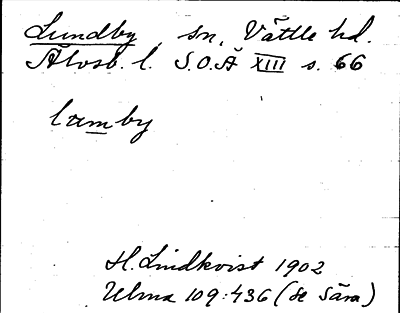 Lundby sn, Vättle hd.
Älvsb. l. S.O.Ä XIII s. 66
lumby
H. Lindkvist 1902
Ulma 109:436 (se Säve)